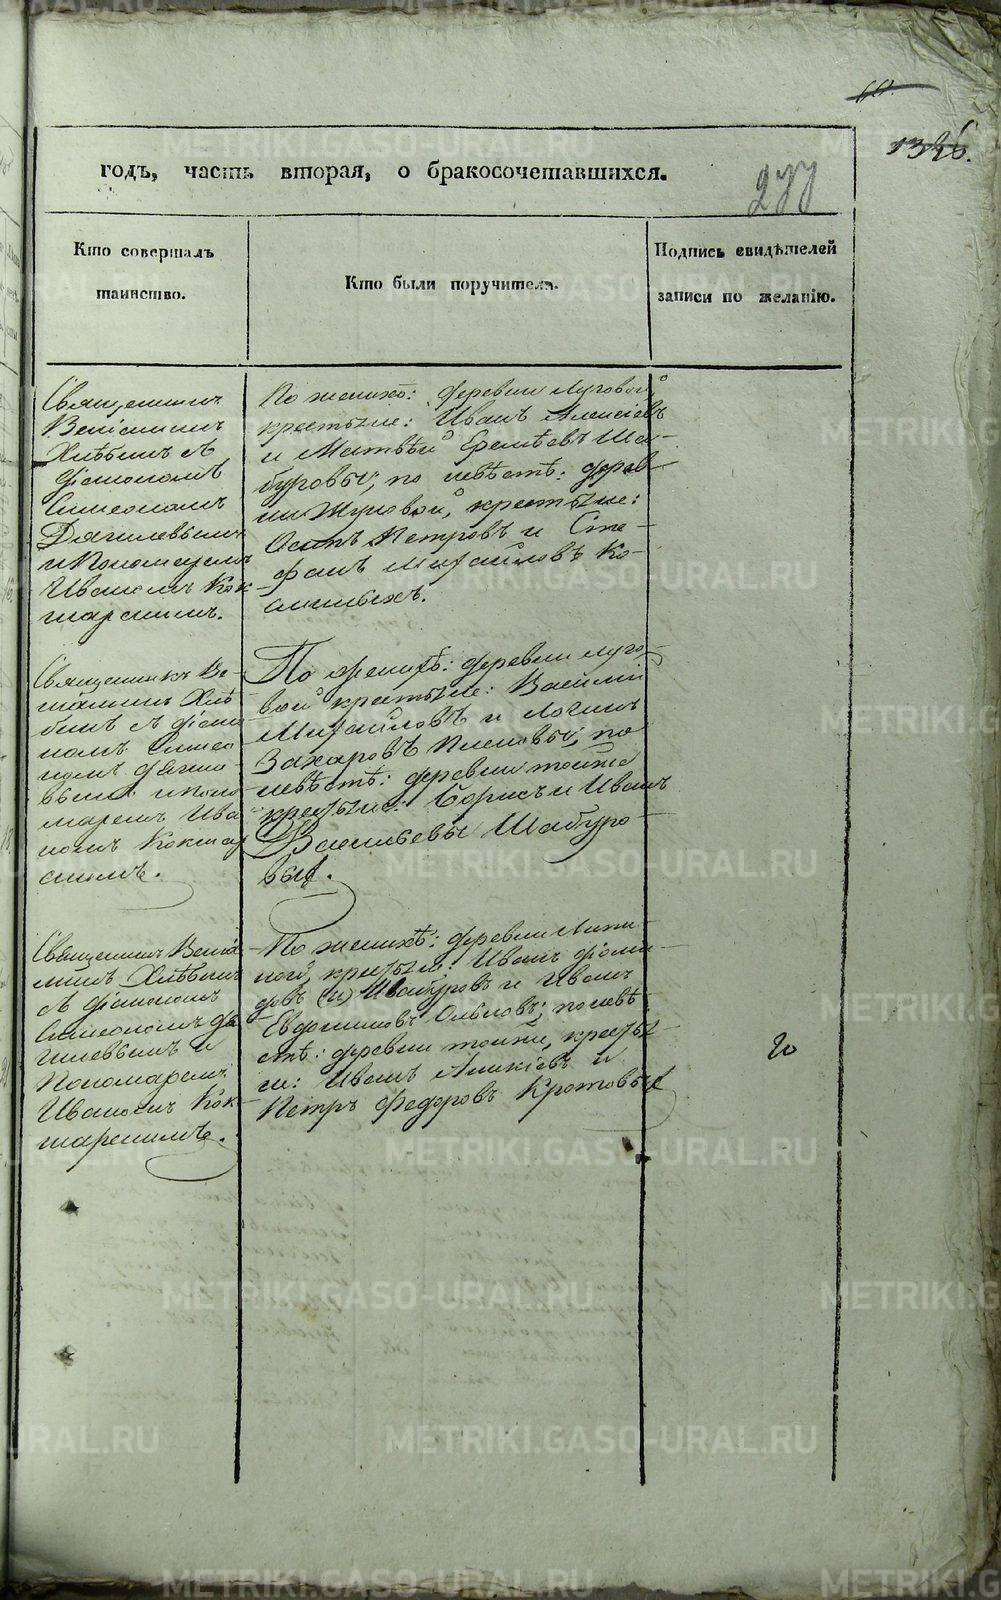 60.
1326.
годъ, часть вторая, о бракосочетавшихся.
277
Кто совершалъ
таинство.
Кто были поручители.
Подпись свидѣтелей
записи по желанію.
Священникъ
Веніаминъ
Хлѣбинъ съ
Діакономъ
Симеономъ
Дягилевымъ
и Пономаремъ
Иваномъ Кок-
шарскимъ.
По женихѣ: деревни Луговой
крестьяне: Иванъ Алексіевъ
и Матвѣй Еремѣевъ Ша-
буровы; по невѣстѣ: дерев-
ни Луговой, крестьяне:
Осипъ Петровъ и Сте-
фанъ Михайловъ Ко-
Священникъ Ве-
ніаминъ Хлѣ-
бинъ съ Діако-
номъ Симео-
номъ Дягиле-
вымъ и Поно-
маремъ Ива-
номъ Кокшар-
скимъ.
По женихѣ: деревни Луго-
вой крестьяне: Василій
Михайловъ и Логинъ
Захаровъ по
невѣстѣ: деревни тойже
крестьяне: Борисъ и Иванъ
Васильевы Шабуро-
вы.
Священникъ Веніа-
минъ Хлѣбинъ
съ Діакономъ
Симеономъ Дя-
гилевымъ и
Пономаремъ
Иваномъ Кок-
шарскимъ.
По женихѣ: деревни
крестьяне: Иванъ
довъ (и) Шабуровъ и Иванъ
Евдокимовъ по невѣ-
стѣ: деревни тойже, крестья-
не: Иванъ Аникіевъ и
Петръ Федоровъ Кротовы.
20
METRIKI.GASO-URAL.RU